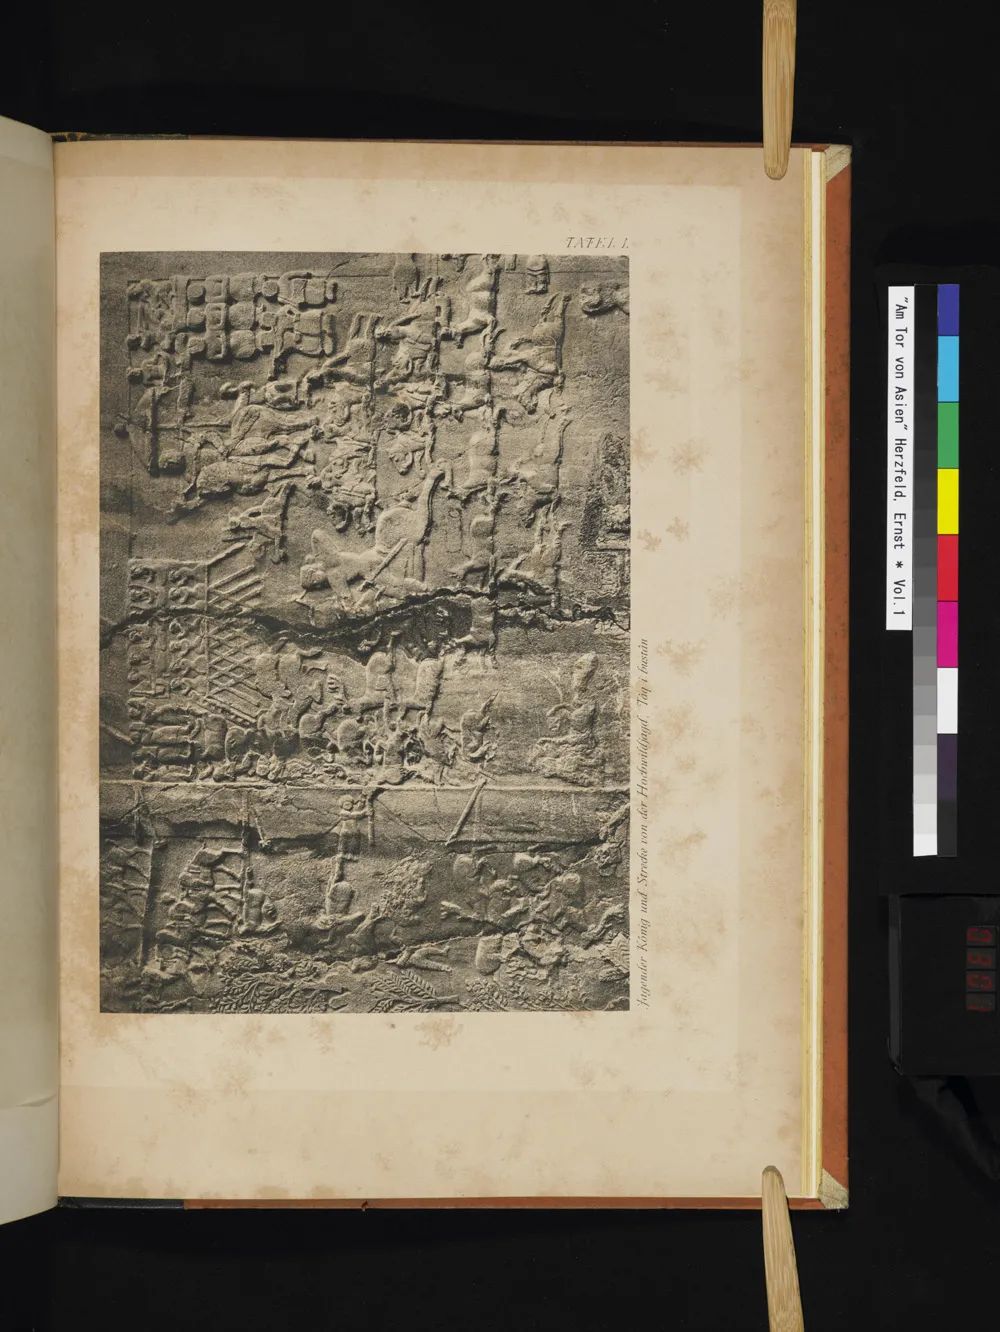 TAFEL L
Jagender König und Strecke von der Hochwildjagd, Ṭāq i bustān
"Am Tor von Asien" Herzfeld, Ernst * Vol.1